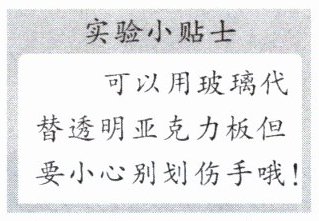 实验小贴士
可以用玻璃代
替透明亚克力板但
要小心别划伤手哦!